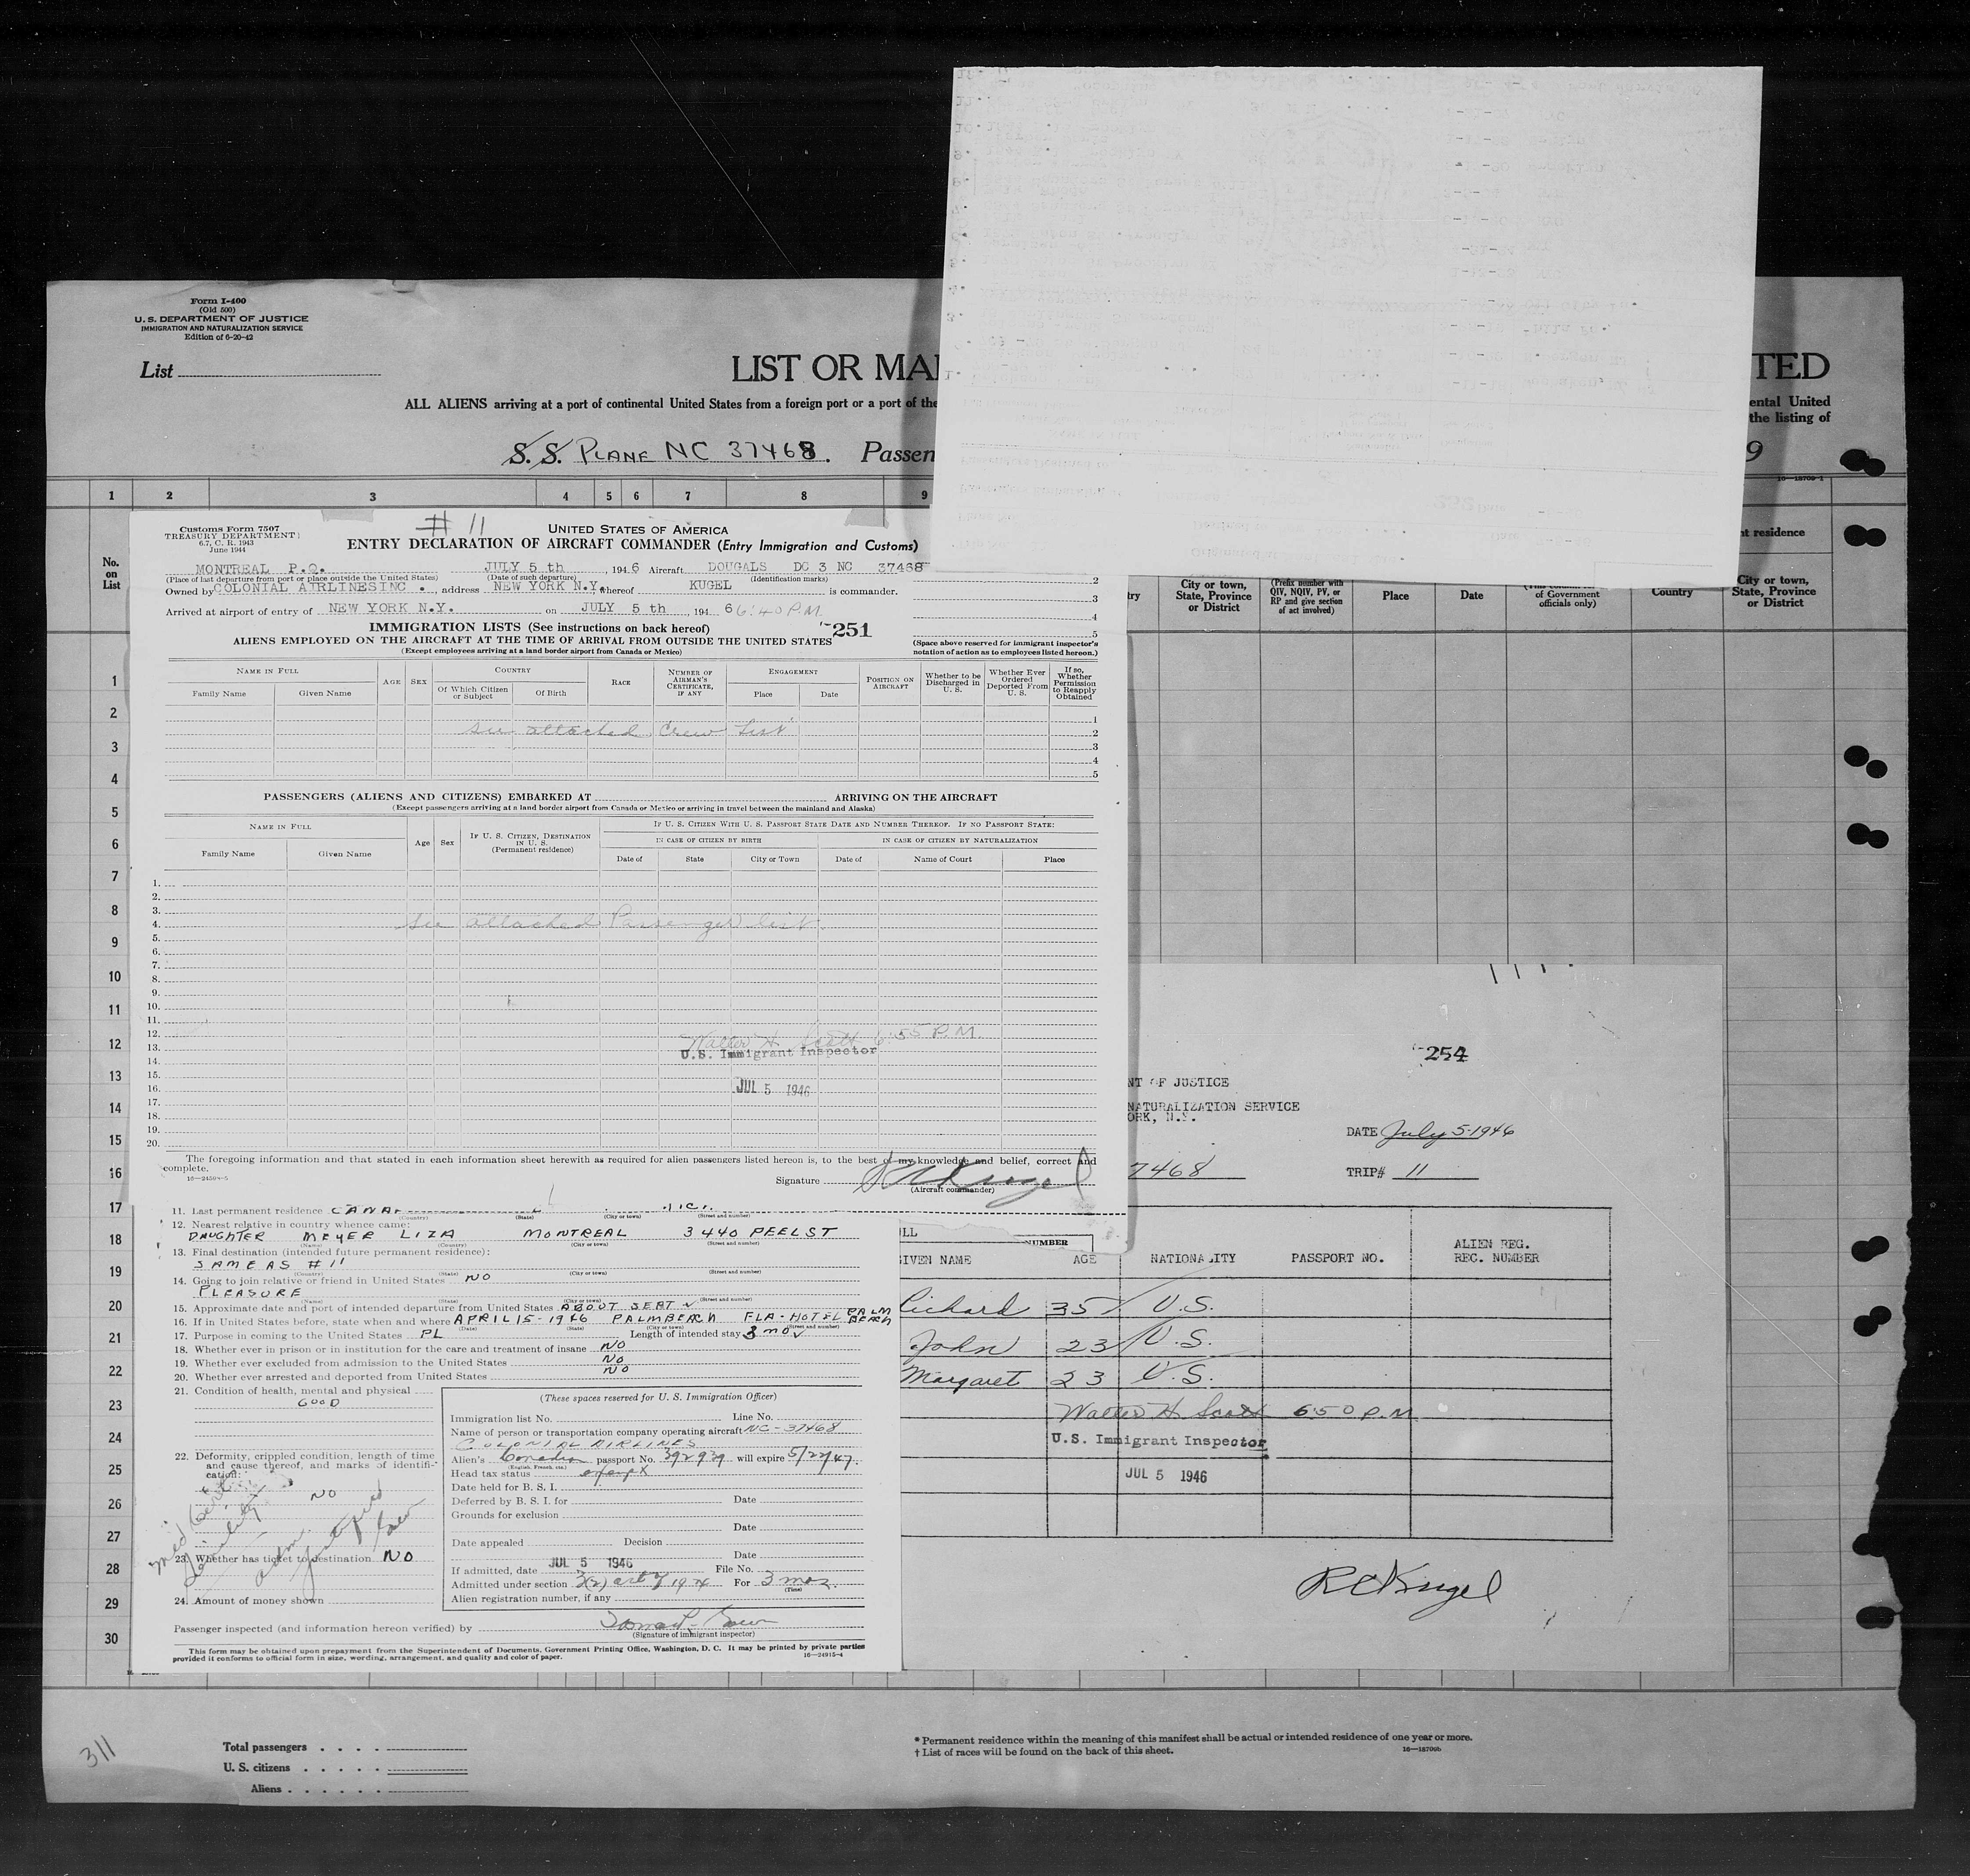 Form I-400
(Old 500)
U. S. DEPARTMENT OF JUSTICE
IMMIGRATION AND NATURALIZATION SERVICE
Edition of 6-20-42
List
LIST OR MA
TED
ALL ALIENS arriving at a port of continental United States from a foreign port or a port of the
ental United
the listing of
S. S. PLANE NC 37468. Passen
9
16—18709-1
1 2 3 4 5 6 7 8 9
No. on List
nt residence
City or town, State, Province or District
(Prefix number with QIV, NQIV, PV, or RP and give section of act involved)
Place
Date
of Government officials only)
Country
City or town, State, Province or District
Customs Form 7507
TREASURY DEPARTMENT
6.7, C. R. 1943
June 1944
# 11
UNITED STATES OF AMERICA
ENTRY DECLARATION OF AIRCRAFT COMMANDER (Entry Immigration and Customs)
MONTREAL P.Q. JULY 5 th , 194 6 Aircraft DOUGALS DC 3 NC 37468
(Place of last departure from port or place outside the United States) (Date of such departure) (Identification marks)
Owned by COLONIAL AIRLINESINC . , address NEW YORK N.Y. thereof KUGEL is commander.
Arrived at airport of entry of NEW YORK N.Y. on JULY 5 th 194 6 6:40 P.M.
IMMIGRATION LISTS (See instructions on back hereof)
251
ALIENS EMPLOYED ON THE AIRCRAFT AT THE TIME OF ARRIVAL FROM OUTSIDE THE UNITED STATES
(Except employees arriving at a land border airport from Canada or Mexico)
2
3
4
5
(Space above reserved for immigrant inspector's notation of action as to employees listed hereon.)
NAME IN FULL
Family Name Given Name
AGE SEX
COUNTRY
Of Which Citizen or Subject Of Birth
RACE
NUMBER OF AIRMAN'S CERTIFICATE, IF ANY
ENGAGEMENT
Place Date
POSITION ON AIRCRAFT
Whether to be Discharged in U. S.
Whether Ever Ordered Deported From U. S.
If so, Whether Permission to Reapply Obtained
see attached Crew List
1
2
3
4
5
PASSENGERS (ALIENS AND CITIZENS) EMBARKED AT ARRIVING ON THE AIRCRAFT
(Except passengers arriving at a land border airport from Canada or Mexico or arriving in travel between the mainland and Alaska)
NAME IN FULL
Family Name Given Name
Age Sex
IF U. S. CITIZEN, DESTINATION IN U. S. (Permanent residence)
IF U. S. CITIZEN WITH U. S. PASSPORT STATE DATE AND NUMBER THEREOF. IF NO PASSPORT STATE:
IN CASE OF CITIZEN BY BIRTH IN CASE OF CITIZEN BY NATURALIZATION
Date of State City or Town Date of Name of Court Place
1.
2.
3.
4. see attached Passenger list.
5.
6.
7.
8.
9.
10.
11.
12.
13. Walter H. Scott 6:55 P.M.
U.S. Immigrant Inspector
14.
15.
16. JUL 5 1946
17.
18.
19.
20.
The foregoing information and that stated in each information sheet herewith as required for alien passengers listed hereon is, to the best of my knowledge and belief, correct and complete.
16—24594-5
Signature R C Kugel
(Aircraft commander)
11. Last permanent residence CANA
(Country) (State) (City or town) (Street and number)
12. Nearest relative in country whence came:
DAUGHTER MEYER LIZA MONTREAL 3440 PEEL ST
(Name) (Country) (City or town) (Street and number)
13. Final destination (intended future permanent residence):
SAME AS # 11
(Country) (State) (City or town) (Street and number)
14. Going to join relative or friend in United States NO
PLEASURE
(Name) (City or town) (Street and number)
15. Approximate date and port of intended departure from United States ABOUT SEPT
16. If in United States before, state when and where APRIL 15-1946 PALM BEACH FLA-HOTEL PALM BEACH
(Date) (State) (City or town) (Street and number)
17. Purpose in coming to the United States PL Length of intended stay 3 mo
18. Whether ever in prison or in institution for the care and treatment of insane NO
19. Whether ever excluded from admission to the United States NO
20. Whether ever arrested and deported from United States NO
21. Condition of health, mental and physical
GOOD
22. Deformity, crippled condition, length of time and cause thereof, and marks of identification:
NO
23. Whether has ticket to destination NO
24. Amount of money shown
(These spaces reserved for U. S. Immigration Officer)
Immigration list No. Line No.
Name of person or transportation company operating aircraft NC-37468
COLONIAL AIRLINES
Alien's Canadian passport No. 392929 will expire 5/22/47.
(English, French, etc.)
Head tax status exempt
Date held for B. S. I.
Deferred by B. S. I. for Date
Grounds for exclusion
Date
Date appealed Decision
Date
If admitted, date JUL 5 1946 File No.
Admitted under section 3(2) act of 1924 For 3 mos.
(Time)
Alien registration number, if any
Passenger inspected (and information hereon verified) by
(Signature of immigrant inspector)
This form may be obtained upon prepayment from the Superintendent of Documents, Government Printing Office, Washington, D. C. It may be printed by private parties provided it conforms to official form in size, wording, arrangement, and quality and color of paper.
16—24915-4
254
NT OF JUSTICE
NATURALIZATION SERVICE
ORK, N.Y.
DATE July 5-1946
7468 TRIP# 11
LL
NUMBER
GIVEN NAME AGE NATIONALITY PASSPORT NO. ALIEN REG. REC. NUMBER
Richard 35 U.S.
John 23 U.S.
Margaret 23 U.S.
Walter H. Scott 6:50 P.M
U.S. Immigrant Inspector
JUL 5 1946
R C Kugel
1
2
3
4
5
6
7
8
9
10
11
12
13
14
15
16
17
18
19
20
21
22
23
24
25
26
27
28
29
30
311
Total passengers . . . .
U. S. citizens . . . . .
Aliens . . . . . .
* Permanent residence within the meaning of this manifest shall be actual or intended residence of one year or more.
† List of races will be found on the back of this sheet.
16—18709b